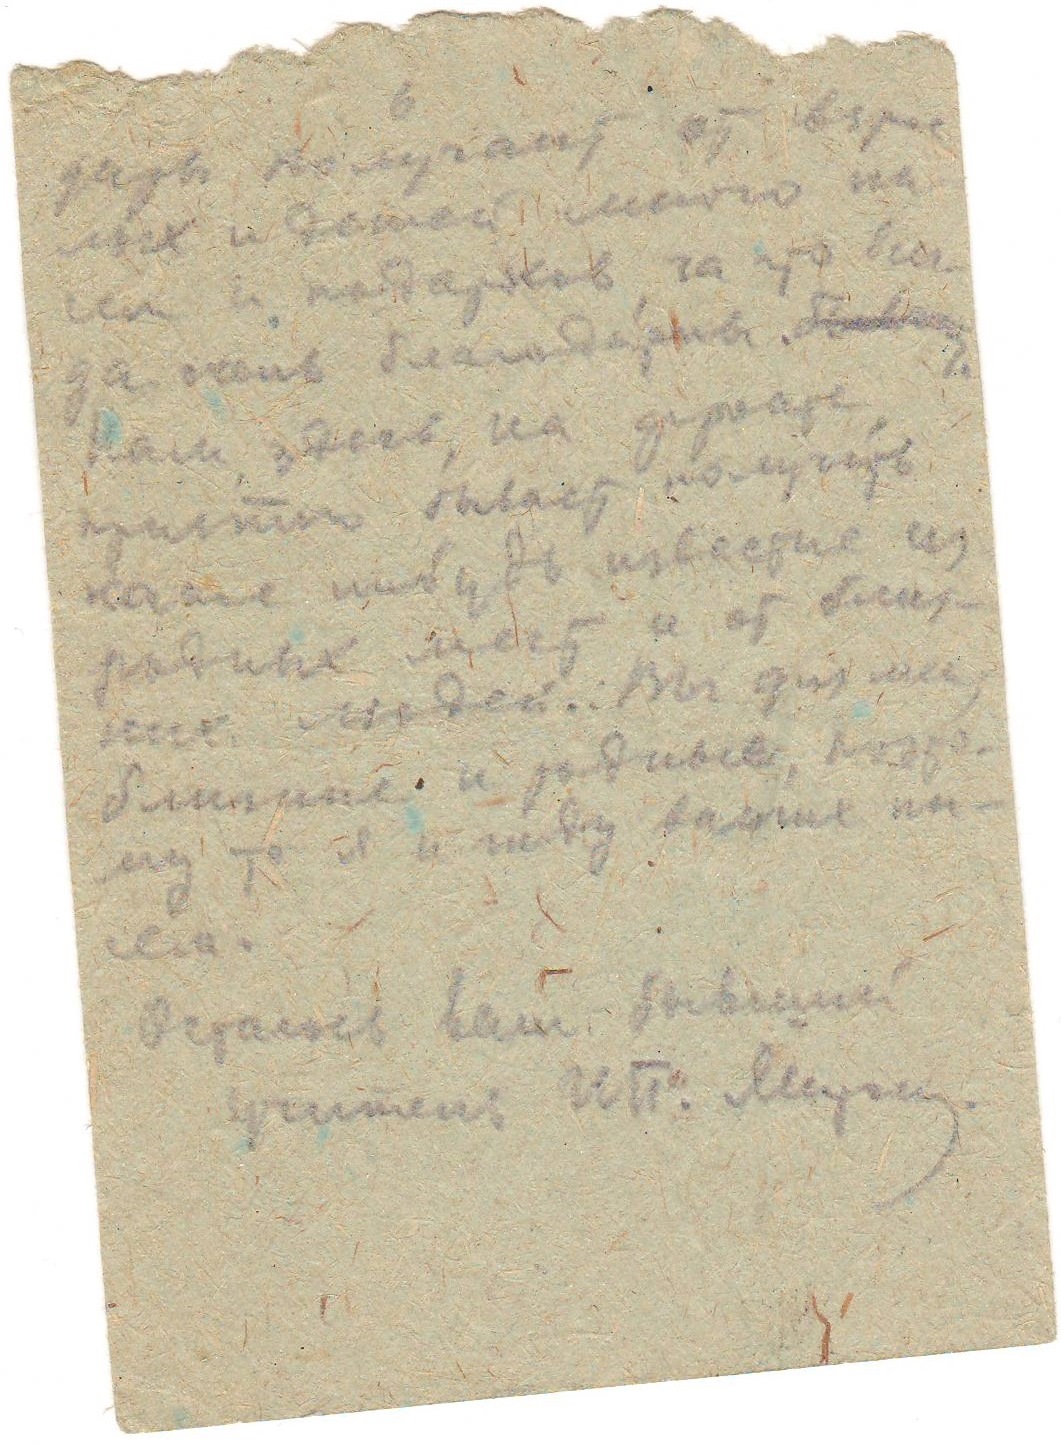 6
получают от взрос
лых и детей много пи
сем и подарков, за что всег
да очень благодарны.
Нам, здесь, на фронте,
приятно бывает получить
какое нибудь известие из
родных мест и от близ-
ких людей. Вы для меня
близкие и родные, поэто-
му то я и жду ваших пи-
сем.
Остаюсь Ваш бывший
учитель И П.